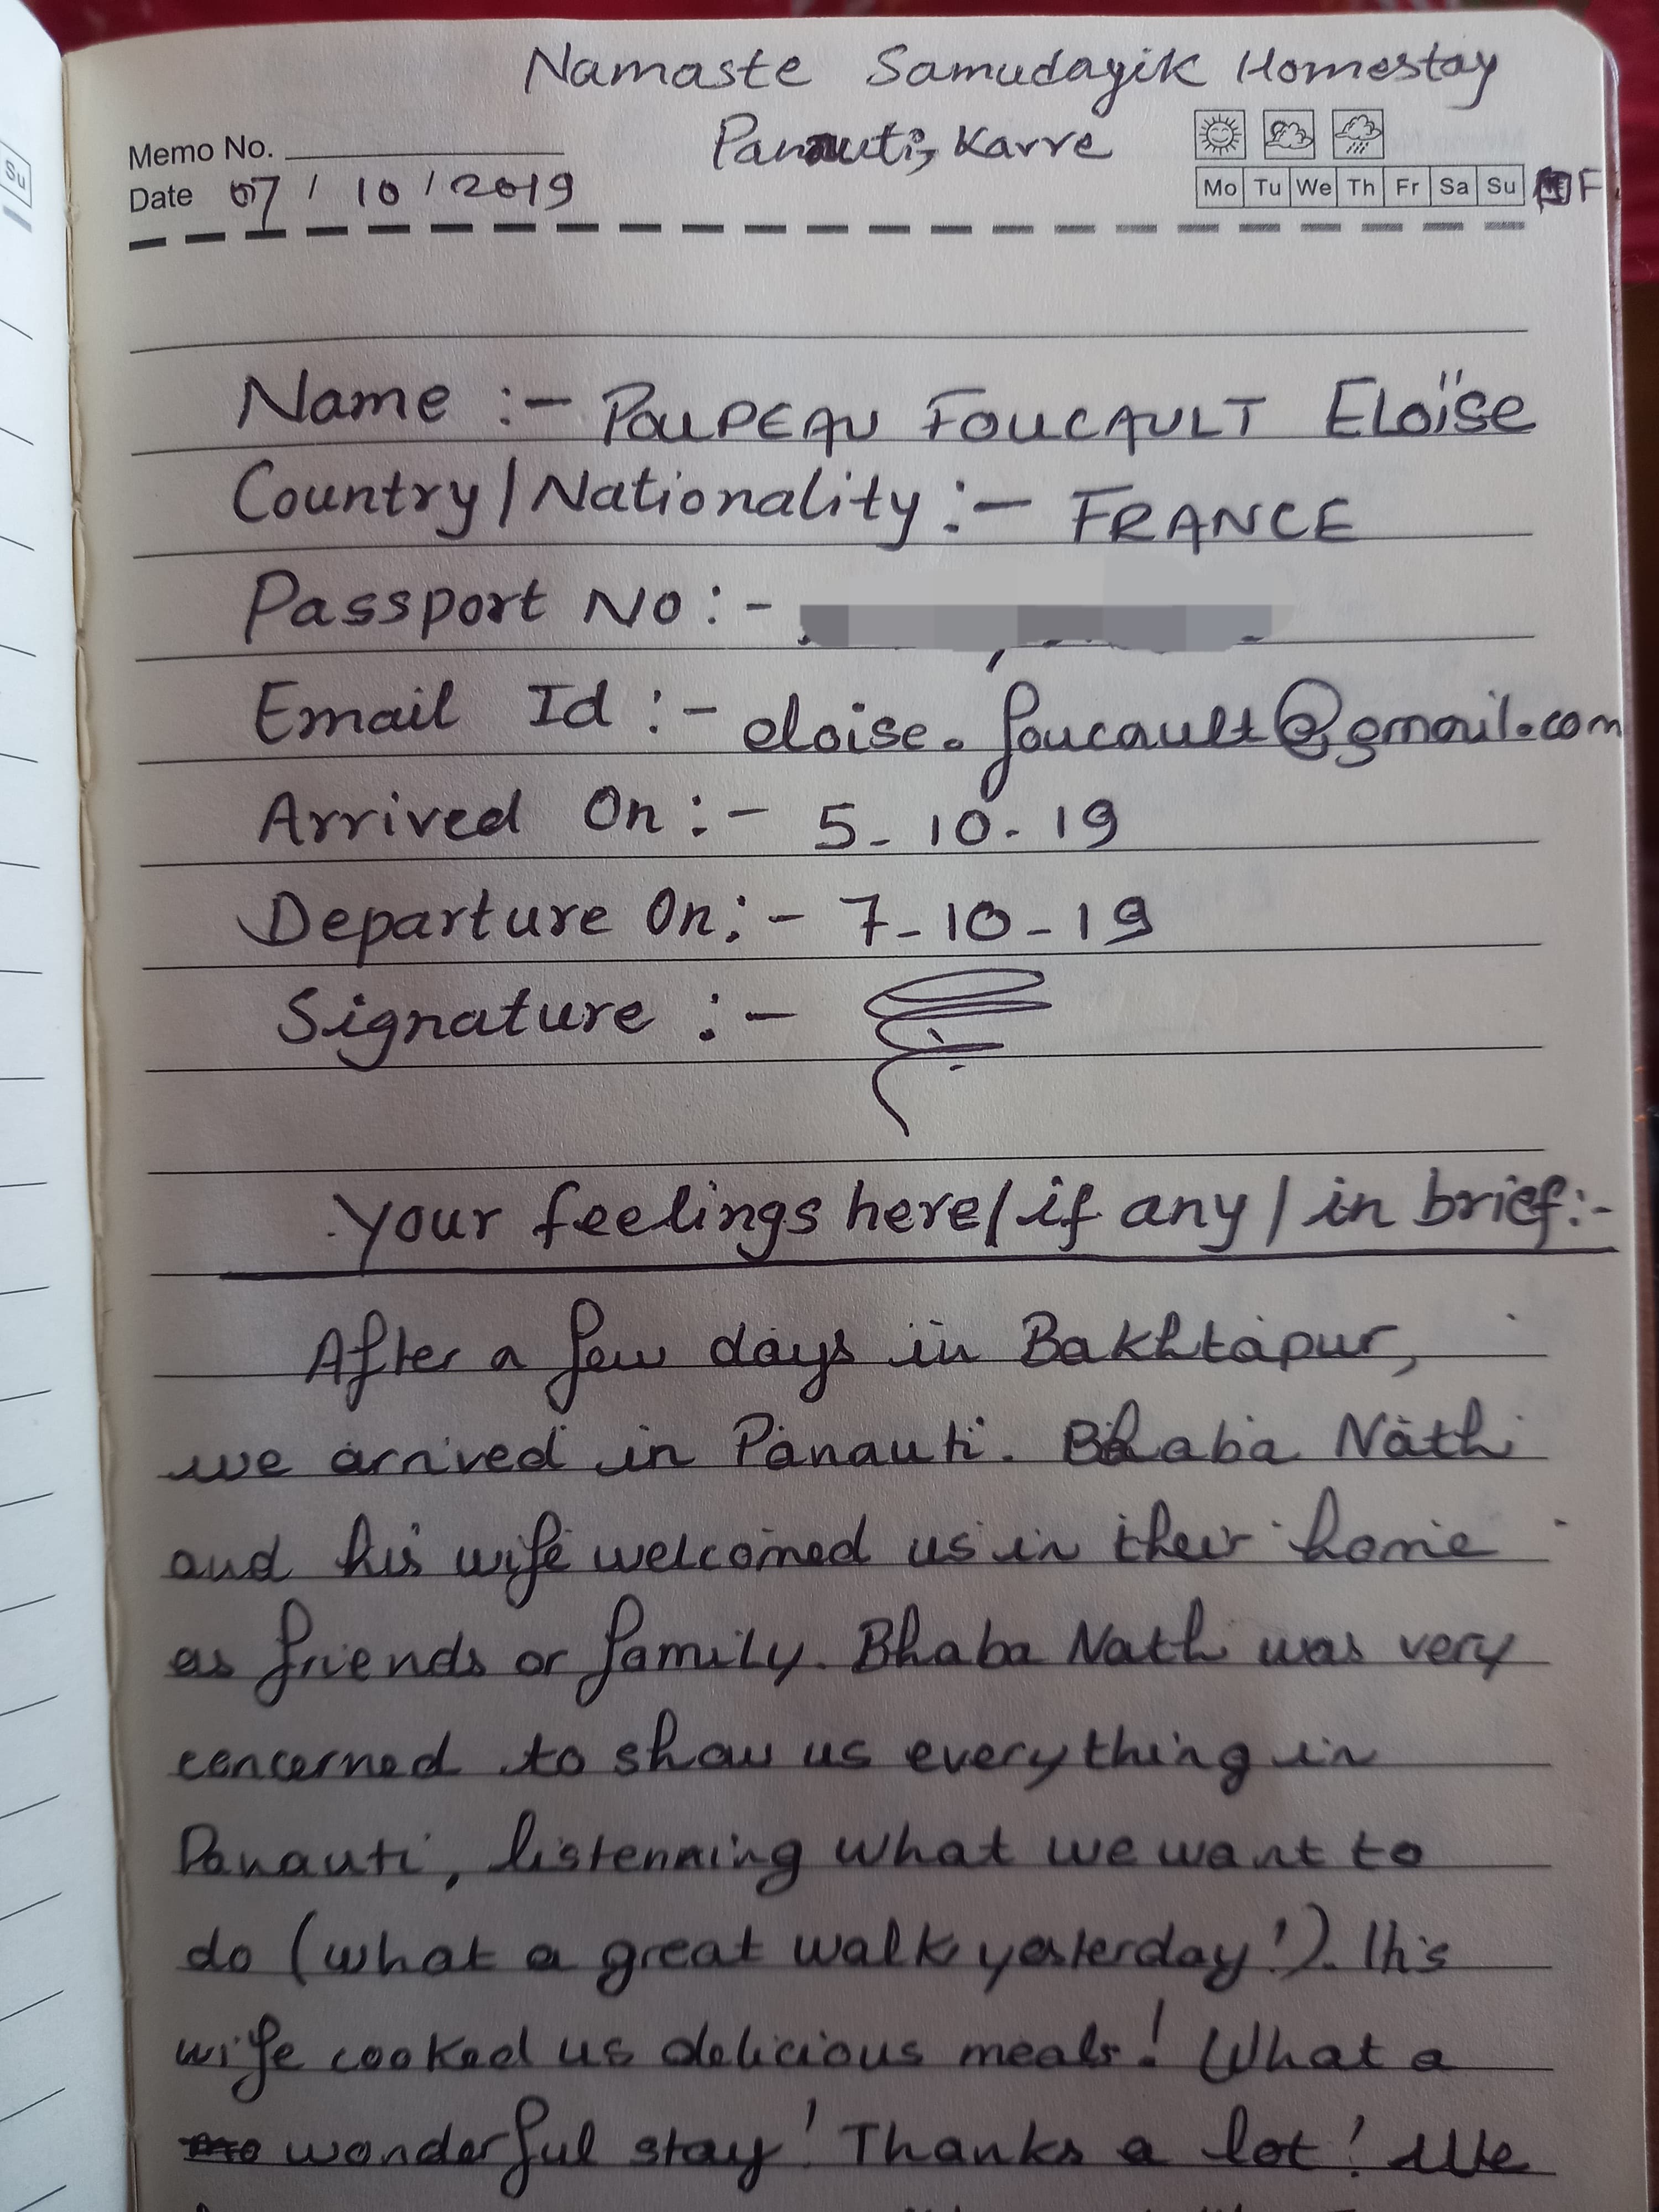 Namaste Samudayik Homestay
Panauti, Kavre
Memo No.
Date 07 / 10 / 2019
Mo Tu We Th Fr Sa Su F
Su
Name :- POUPEAU FOUCAULT ELOïSE
Country/Nationality :- FRANCE
Passport No :-
Email Id :- eloise.foucault@gmail.com
Arrived On :- 5-10-19
Departure On :- 7-10-19
Signature :-
Your feelings here/if any/in brief:-
After a few days in Bakhtapur,
we arrived in Panauti. Bhaba Nath
and his wife welcomed us in their home
as friends or family. Bhaba Nath was very
concerned to show us everything in
Panauti, listenning what we want to
do (what a great walk yesterday!). His
wife cooked us delicious meals! What a
wonderful stay! Thanks a lot! We